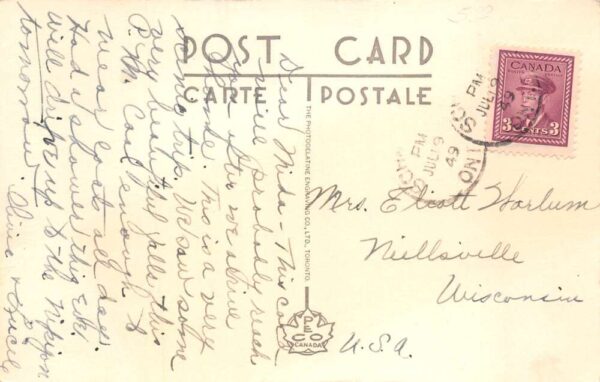 POST CARD
CARTE POSTALE
CANADA
3 CENTS 3
PM
JUL 9
49
ONT.
PM
JUL 9
49
ONT.
THE PHOTOGELATINE ENGRAVING CO., LTD., TORONTO.
PECO
CANADA
Dear Meda - This card
will probably reach
you after we arrive
home. This is a very
scenic trip. We saw some
very beautiful falls this
P. M. Cool enough to
wear coats all day.
Had a shower this eve.
Will drive up to the Nipigon
tomorrow.
Olive &
Mrs. Eliott Harlum
Neillsville
Wisconsin
U.S.A.